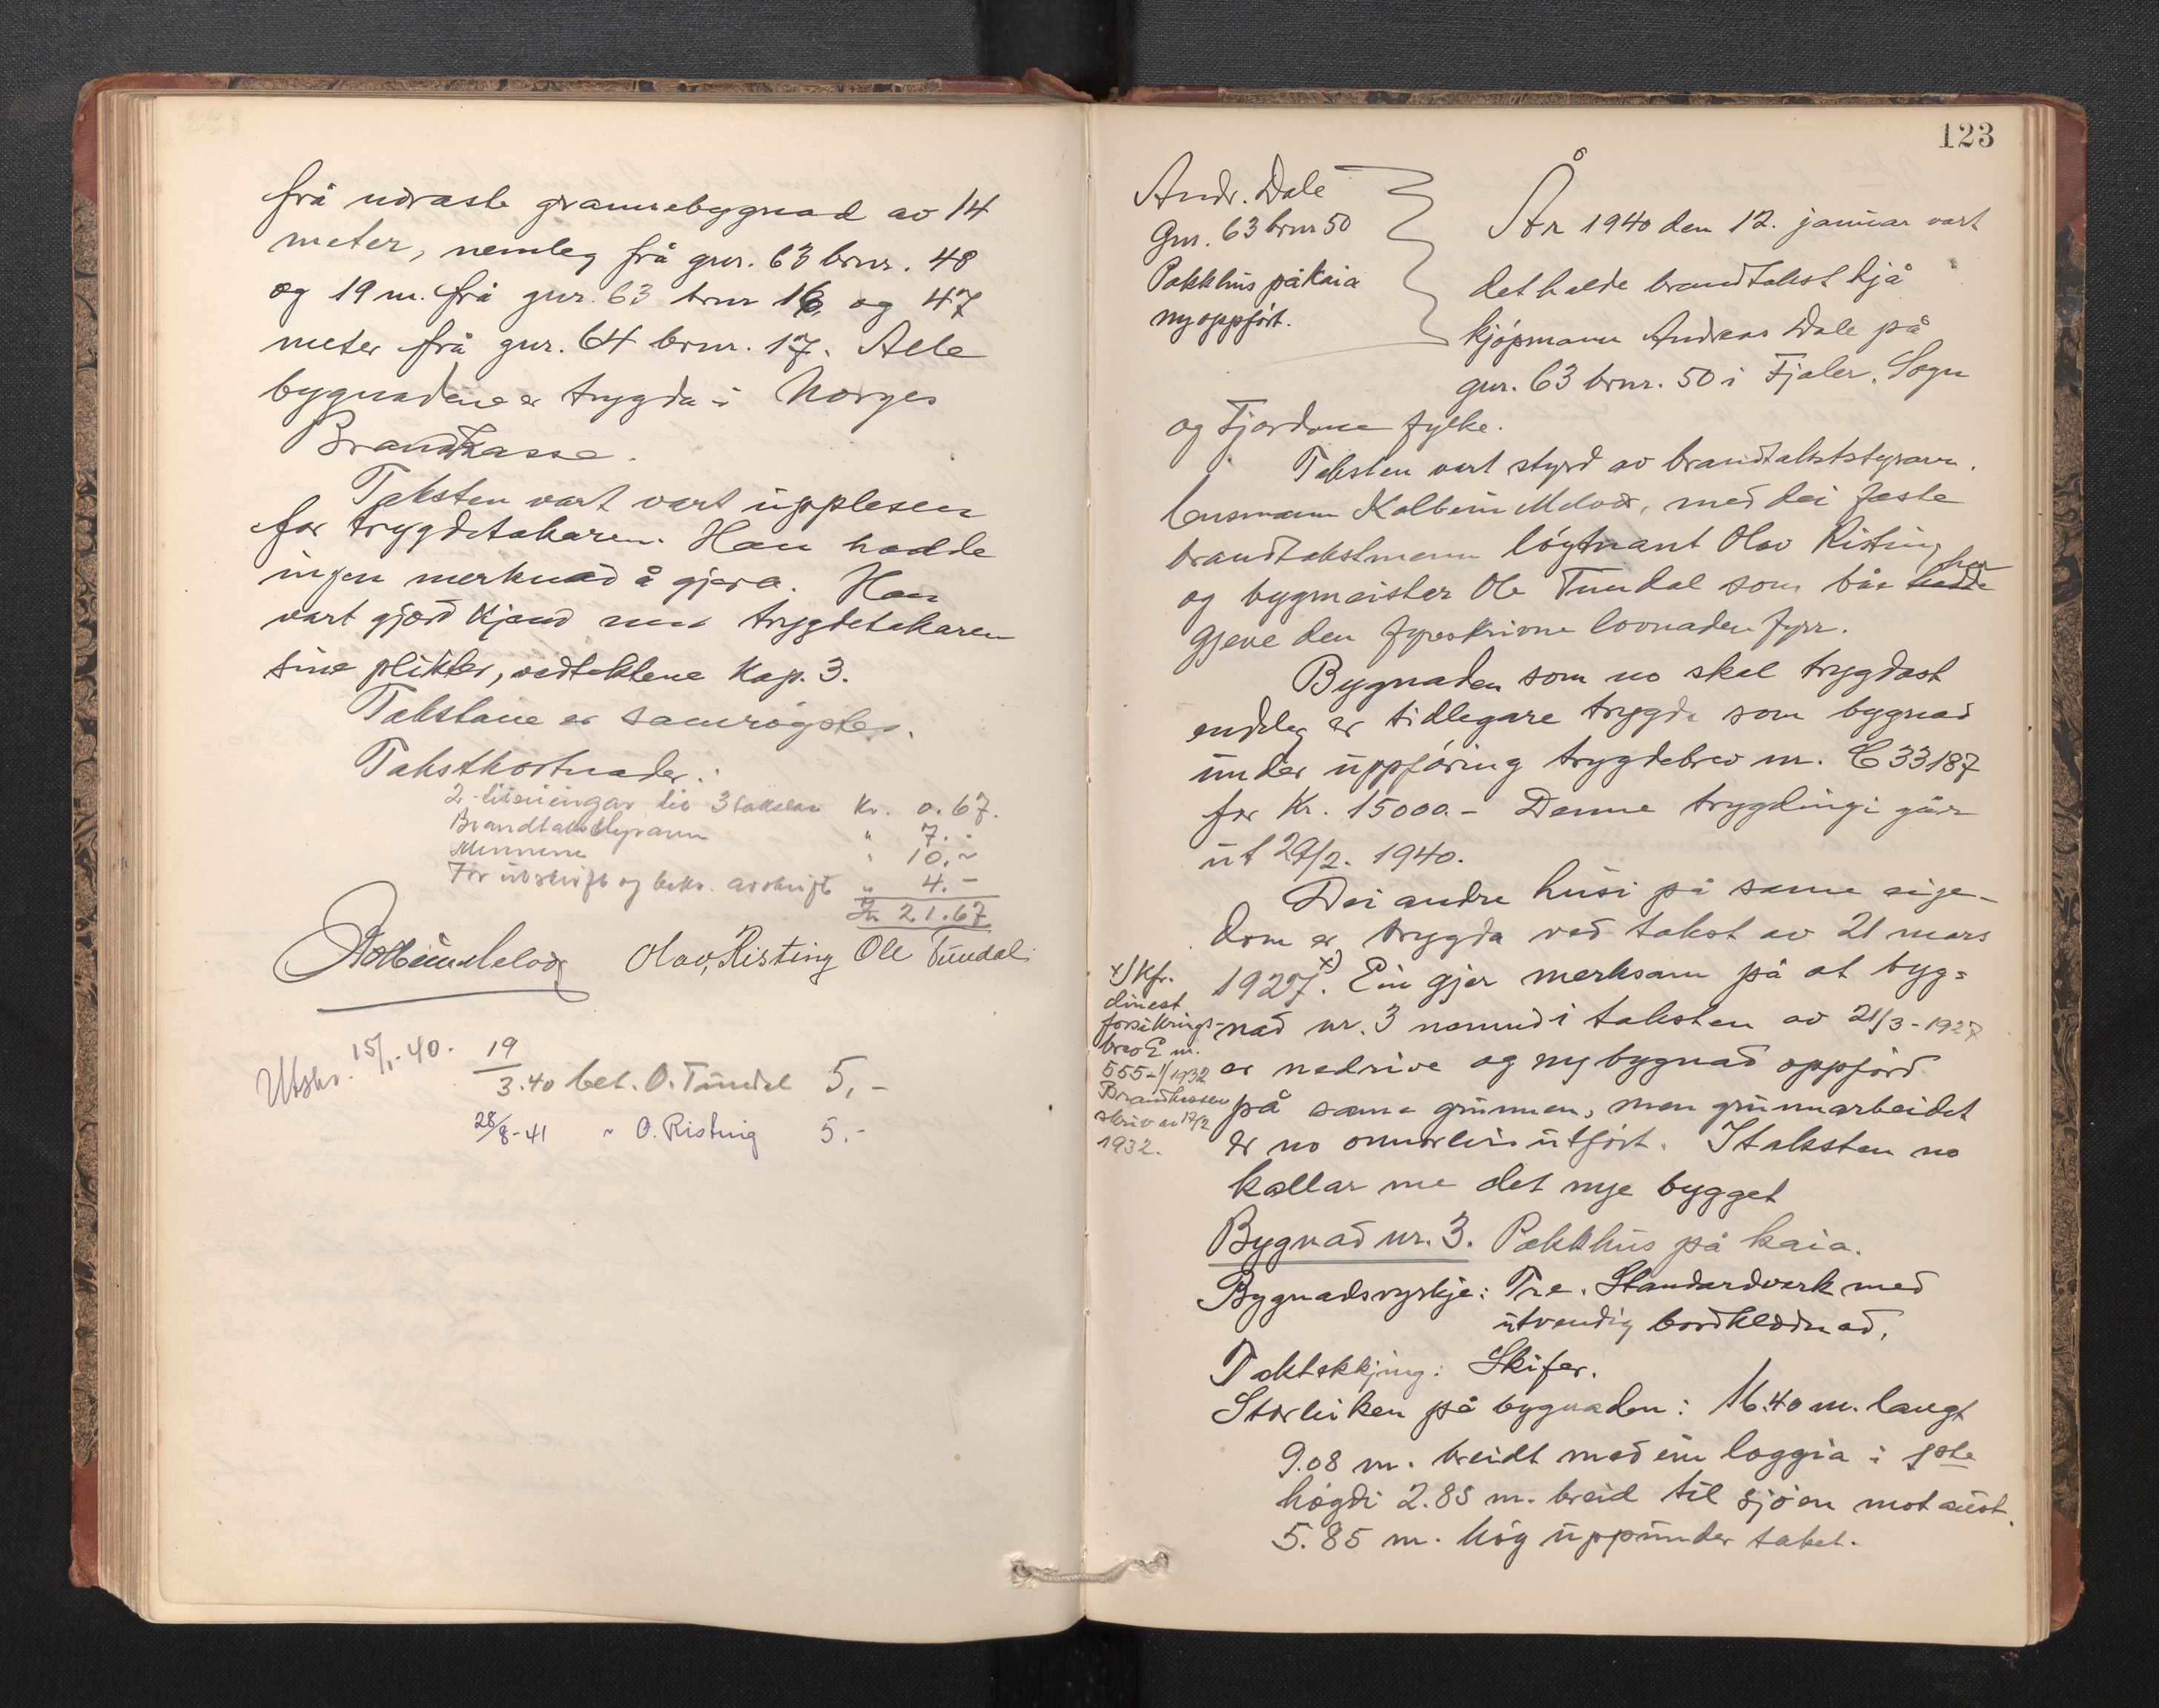 frå næraste grannebygnad av 14
meter, nemleg frå gnr. 63 brnr. 48
og 19 m. frå gnr. 63 brnr 16 og 47
meter frå gnr. 64 brnr. 17. Alle
bygnadene er trygda i Norges
Brandkasse.
Taksten vart vart upplesen
for trygdetakaren. Han hadde
ingen merknad å gjera. Han
vart gjord kjend med trygdetakaren
sine plikter, vedtektene kap. 3.
Takstane er samrøystes.
Takstkostnader:
2 lisningar til 3 takstar Kr. 0.67.
Brandtakststyrarn " 7.-
Mennene " 10.-
For utskrift og bekr. avskrift " 4.-
Kr 21.67
Kolbein Melvær Olav Risting Ole Tundal
Utskr. 15/1-40.
19/3.40 bet. O. Tundal 5,-
28/8-41 " O. Risting 5.-
123
Andr. Dale
Gnr. 63 brnr 50
Pakkhus på kaia
ny oppført.
År 1940 den 12. januar vart
det halde brandtakst hjå
kjøpmann Andreas Dale på
gnr. 63 brnr. 50 i Fjaler, Sogn
og Fjordane fylke.
Taksten vart styrd av brandtakststyraren.
lensmann Kolbein Melvær, med dei faste
brandtakstmenn løytnant Olav Risting
og bygmeister Ole Tundal som båe hadde har
gjeve den fyreskrivne lovnaden fyrr.
Bygnaden som no skal trygdast
endeleg er tidlegare trygda som bygnad
under uppføring trygdebrev nr. C 33187
for Kr. 15000.- Denne trygdingi går
ut 29/2. 1940.
Dei andre husi på same eige-
dom er trygda ved takst av 21 mars
1927. x) Ein gjer merksam på at byg=
nad nr. 3 nemnd i taksten av 21/3-1927
er nedrive og ny bygnad oppførd
på same grunnen, men grunnarbeidet
er no onnorleis utført. I taksten no
kallar me det nye bygget
x) Kfr.
dinest
forsikrings-
brev E nr.
555-1/1 1932
Brandkassen
skriv av 17/2
1932.
Bygnad nr. 3. Pakkhus på kaia.
Bygnadsvyrkje: Tre. Standardverk med
utvendig bordklednad.
Taktekkjing: Skifer.
Storleiken på bygnaden: 16.40 m. langt
9.08 m. breidt med ein loggia i 1ste
høgdi 2.85 m. breid til sjøen mot aust.
5.85 m. høg uppunder taket.